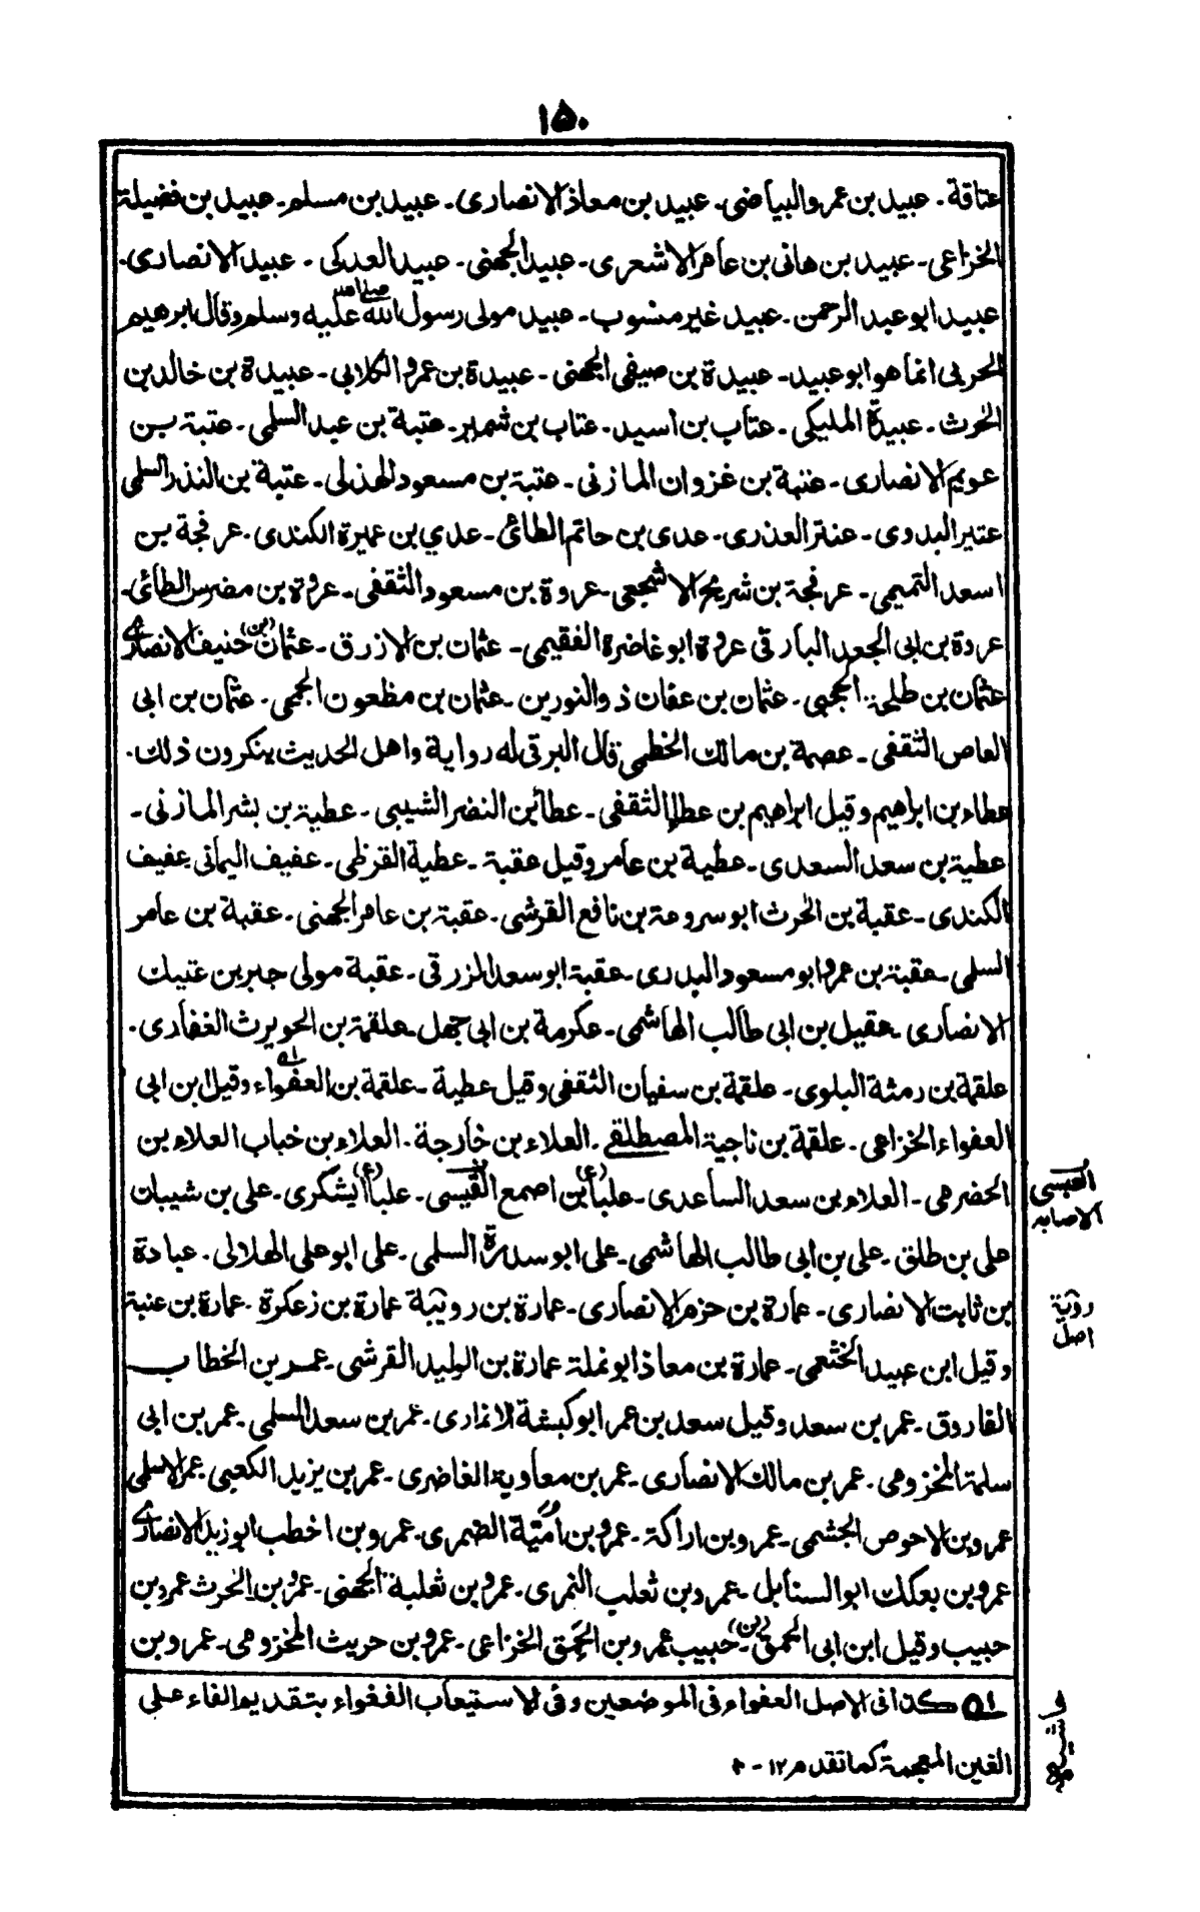 ١٥٠
عتاقة ـ عبيد بن عمرو البياضى ـ عبيد بن معاذ الانصارى ـ عبيد بن مسلم ـ عبيد بن فضيلة
الخزاعى ـ عبيد بن هانى بن عامر الاشعرى ـ عبيد الجهنى ـ عبيد العدكى ـ عبيد الانصارى ـ
عبيد ابو عبد الرحمن ـ عبيد غير منسوب ـ عبيد مولى رسول الله صلى الله عليه وسلم وقال ابرهيم
الحربى انما هو ابو عبيد ـ عبيدة بن صيفى الجهنى ـ عبيدة بن عمرو الكلابى ـ عبيدة بن خالد بن
الحرث ـ عبيدة المليكى ـ عتاب بن اسيد ـ عتاب بن شمير ـ عتبة بن عبد السلمى ـ عتبة بن
عويم الانصارى ـ عتبة بن غزوان المازنى ـ عتبة بن مسعود الهذلى ـ عتبة بن الندر السلمى
عتير البدوى ـ عنتر العذرى ـ عدى بن حاتم الطائى ـ عدي بن عميرة الكندى ـ عرفجة بن
اسعد التميمى ـ عرفجة بن شريح الاشجعى ـ عروة بن مسعود الثقفى ـ عروة بن مضرس الطائى ـ
عروة بن ابى الجعد البارقى عروة ابو غاضرة الفقيمى ـ عثمان بن الازرق ـ عثمان (بن) حنيف الانصارى
عثمان بن طلحة الحجبى ـ عثمان بن عفان ذو النورين ـ عثمان بن مظعون الجمحى ـ عثمان بن ابى
العاص الثقفى ـ عصمة بن مالك الخطمى قال البرقى له رواية واهل الحديث ينكرون ذلك ـ
عطاء بن ابراهيم وقيل ابراهيم بن عطا الثقفى ـ عطا بن النضر الشيبى ـ عطية بن بشر المازنى ـ
عطية بن سعد السعدى ـ عطية بن عامر وقيل عقبة ـ عطية القرظى ـ عفيف اليمانى عفيف
الكندى ـ عقبة بن الحرث ابو سروعة بن نافع القرشى ـ عقبة بن عامر الجهنى ـ عقبة بن عامر
السلمى ـ عقبة بن عمرو ابو مسعود البدرى ـ عقبة ابو سعد الزرقى ـ عقبة مولى جبر بن عتيك
الانصارى ـ عقيل بن ابى طالب الهاشمى ـ عكرمة بن ابى جهل ـ علقمة بن الحويرث الغفارى ـ
علقمة بن رمثة البلوى ـ علقمة بن سفيان الثقفى وقيل عطية ـ علقمة بن العفواء ۵۱ وقيل ابن ابى
العفواء الخزاعى ـ علقمة بن ناجية المصطلقى ـ العلاء بن خارجة ـ العلاء بن خباب العلاء بن
الحضرمى ـ العلاء بن سعد الساعدى ـ علبا (ء) بن اصمع القيسى ـ علبا (ء) اليشكرى ـ على بن شيبان
على بن طلق ـ على بن ابى طالب الهاشمى ـ على ابو سدرة السلمى ـ على ابو على الهلالى ـ عبادة
بن ثابت الانصارى ـ عمارة بن حزم الانصارى ـ عمارة بن رويبة عمارة بن زعكرة ـ عمارة بن عنبة
وقيل ابن عبيد الخثعمى ـ عمارة بن معاذ ابو نملة عمارة بن الوليد القرشى ـ عمر بن الخطاب
الفاروق ـ عمر بن سعد وقيل سعد بن عمر ابو كبشة الانمارى ـ عمر بن سعد السلمى ـ عمر بن ابى
سلمة المخزومى ـ عمر بن مالك الانصارى ـ عمر بن معاوية الغاضرى ـ عمر بن يزيد الكعبى عمر الاسلمى
عمرو بن الاحوص الجشمى ـ عمرو بن اراكة ـ عمرو بن أميّة الضمرى ـ عمرو بن اخطب ابو زيد الانصارى
عمرو بن بعكك ابو السنابل ـ عمرو بن ثعلب النمرى ـ عمرو بن ثعلبة الجهنى ـ عمرو بن الحرث عمرو بن
حبيب وقيل ابن ابى الحمق ـ (بن) حبيب عمرو بن الحمق الخزاعى ـ عمرو بن حريث المخزومى ـ عمرو بن
العبسى
الاصابه
روبية
اصل
۵۱ كذا فى الاصل العفواء فى الموضعين وفى الاستيعاب الفغواء بتقديم الفاء على
الغين المعجمة كما تقدم ١٢ ـ
حاشيه